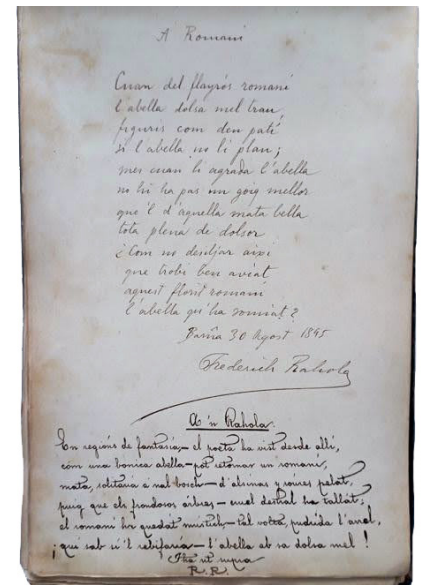 A Romaní
Cuan del flayrós romaní
l'abella dolsa mel trau,
figuris com deu patí
si l'abella no li plau;
mes cuan li agrada l'abella
no hi ha pas un goig mellor
que'l d'aquella mata bella
tota plena de dolsor
¿Com no desitjar aixi
que trobi ben aviat
aquest florit romaní
l'abella qu'ha somiat?
Barña 30 Agost 1895
Frederich Rahola
A 'n Rahola.
En regións de fantasía,— el poeta ha vist desde allí,
com una bonica abella— pot retornar un romaní,
mata, solitaria á nal bosch— d'alsinas y roures pelat,
puig que els frondosos arbres,— cruel destral ha tallat;
el romaní hi quedat mustich— tal volta, pudrida l'arrel,
¡qui sab si'l rebifaria— l'abella ab sa dolsa mel!
ut supra
R. R.